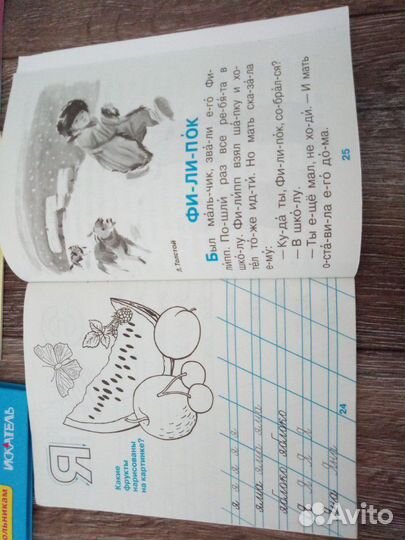 Я
Какие
фрукты
нарисованы
на картинке?
я я я я я
яма яма яма
яблоко яблоко
Я Я Я Я
Яна
24
Л. ТОЛСТОЙ
ФИ-ЛИ-ПО́К
Был ма́ль-чик, зва́-ли е-го́ Фи-
ли́пп. По-шли́ раз все ре-бя́-та в
шко́-лу. Фи-ли́пп взял ша́п-ку и хо-
те́л то́-же ид-ти́. Но мать ска-за́-ла
е-му́:
— Ку-да́ ты, Фи-ли-по́к, со-бра́л-ся?
— В шко́-лу.
— Ты е-щё мал, не хо-ди́. — И мать
о-ста́-ви-ла е-го́ до́-ма.
25
ИСКАТЕЛЬ
ольникам
Avito